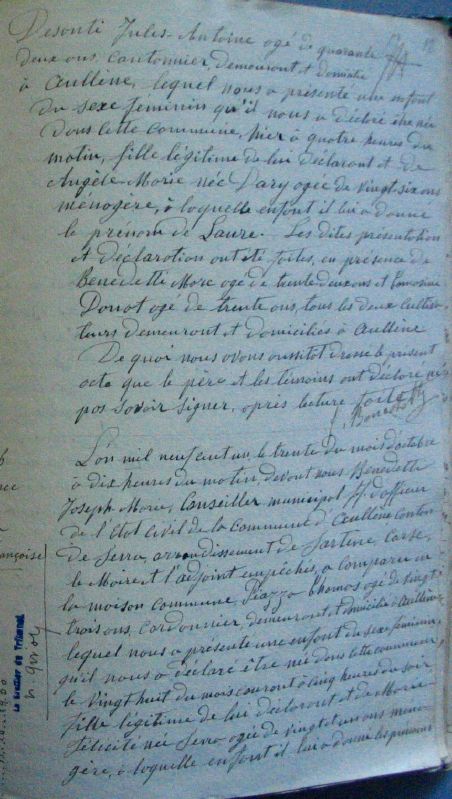 Desanti Jules-Antoine agé de quarante
deux ans, cantonnier demeurant et domicilié
à Aullène, lequel nous a présenté une enfant
du sexe féminin qu'il nous a déclaré être née
dans cette commune, hier à quatre heures du
matin, fille légitime de lui déclarant et de
Angèle-Marie née Pary agée de vingt-six ans
ménagère, à laquelle enfant il lui a donné
le prénom de Laure. Les dites présentation
et déclaration ont été faites, en présence de
Benedetti Marc agé de trente deux ans et
agé de trente ans, tous les deux cultiva-
teurs demeurant et domiciliés à Aullène
De quoi nous avons aussitot dressé le présent
acte que le père et les témoins ont déclaré ne
pas savoir signer, après lecture faite
L'an mil neuf cent un, le trente du mois d'octobre
à dix heures du matin, devant nous Benedetti
Joseph Marie, Conseiller municipal ff d'officier
de l'Etat Civil de la commune d'Aullène canton
de Serra, arrondissement de Sartène, Corse,
le Maire et l'adjoint empêchés, a comparu en
la maison commune, Piazza Thomas agé de vingt
trois ans, cordonnier, demeurant et domicilié à Aullène
lequel nous a présenté une enfant du sexe féminin,
qu'il nous a déclaré être née dans cette commune
le vingt huit du mois courant à cinq heures du soir
fille légitime de lui déclarant et de Marie-
Félicité née Serra agée de vingt et un ans ména-
gère, à laquelle enfant il lui a donné les prénoms
Le Greffier du Tribunal